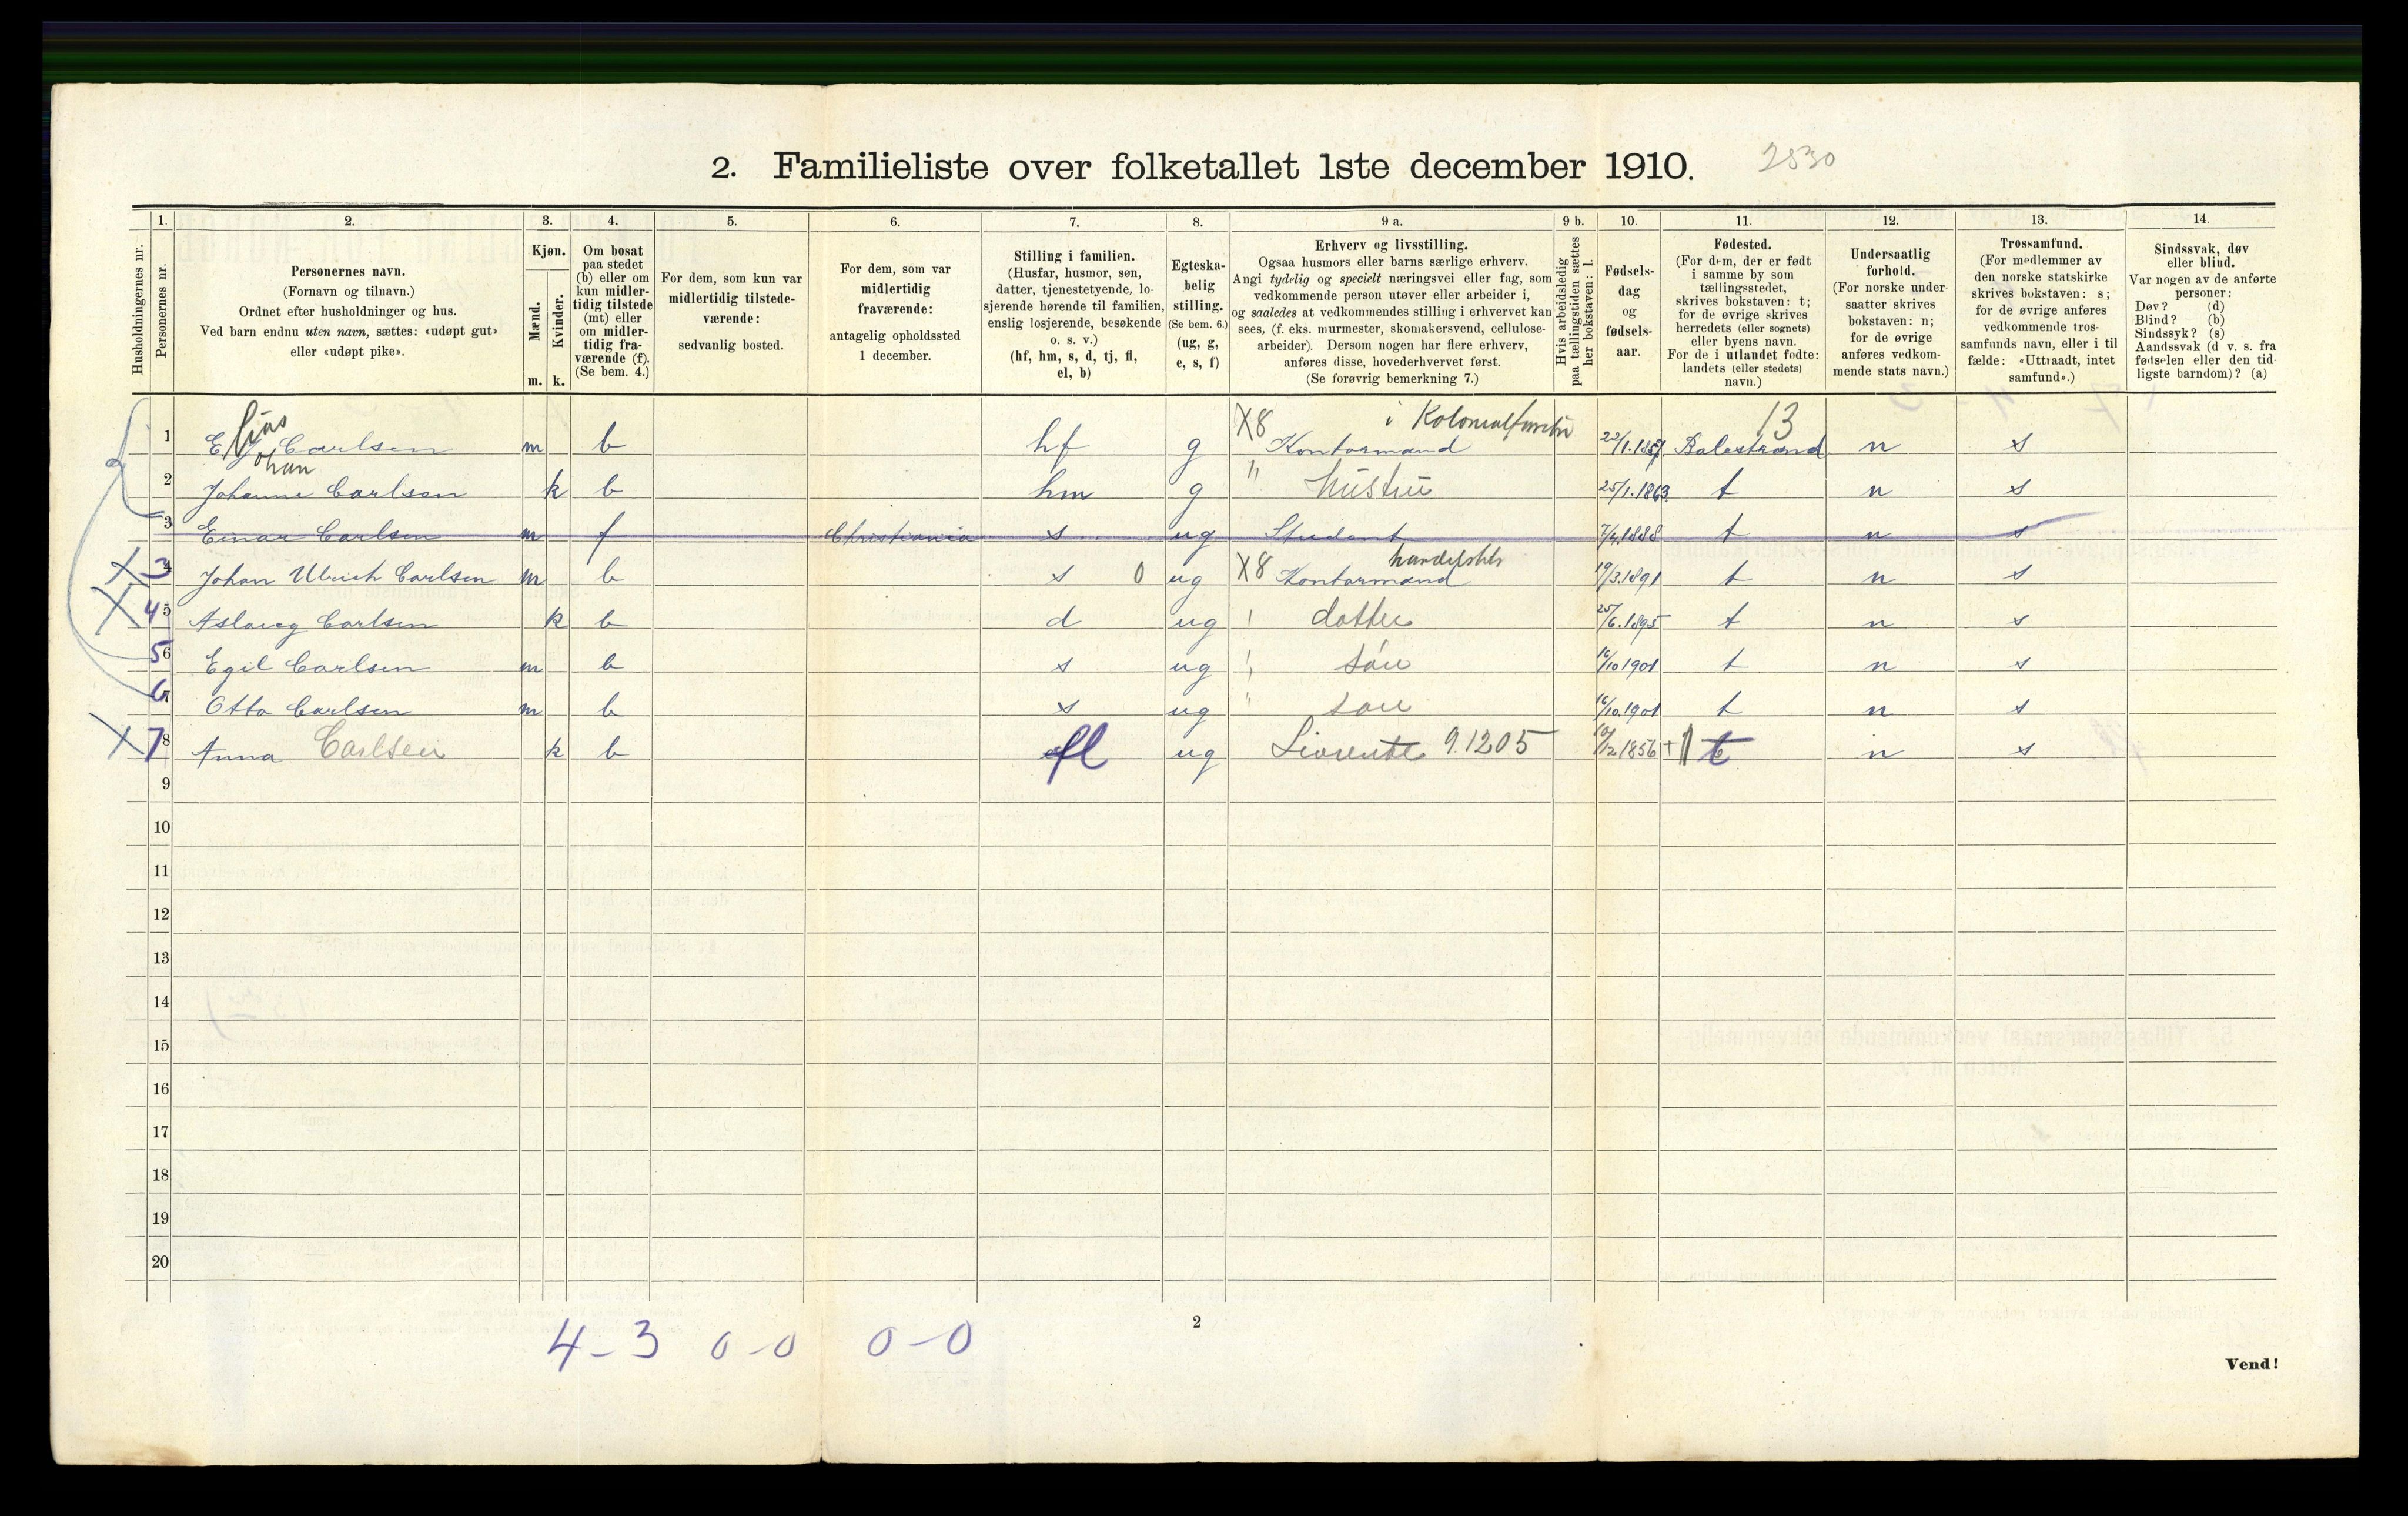 2. Familieliste over folketallet 1ste december 1910. 2830
Husholdningernes nr.
1. Personernes nr.
2. Personernes navn. (Fornavn og tilnavn.) Ordnet efter husholdninger og hus. Ved barn endnu uten navn, sættes: «udøpt gut» eller «udøpt pike».
3. Kjøn. Mænd. m. Kvinder. k.
4. Om bosat paa stedet (b) eller om kun midlertidig tilstede (mt) eller om midlertidig fraværende (f). (Se bem. 4.)
5. For dem, som kun var midlertidig tilstedeværende: sedvanlig bosted.
6. For dem, som var midlertidig fraværende: antagelig opholdssted 1 december.
7. Stilling i familien. (Husfar, husmor, søn, datter, tjenestetyende, losjerende hørende til familien, enslig losjerende, besøkende o. s. v.) (hf, hm, s, d, tj, fl, el, b)
8. Egteskabelig stilling. (Se bem. 6.) (ug, g, e, s, f)
9 a. Erhverv og livsstilling. Ogsaa husmors eller barns særlige erhverv. Angi tydelig og specielt næringsvei eller fag, som vedkommende person utøver eller arbeider i, og saaledes at vedkommendes stilling i erhvervet kan sees, (f. eks. murmester, skomakersvend, cellulosearbeider). Dersom nogen har flere erhverv, anføres disse, hovederhvervet først. (Se forøvrig bemerkning 7.)
9 b. Hvis arbeidsledig paa tællingstiden sættes her bokstaven: l.
10. Fødselsdag og fødselsaar.
11. Fødested. (For dem, der er født i samme by som tællingsstedet, skrives bokstaven: t; for de øvrige skrives herredets (eller sognets) eller byens navn. For de i utlandet fødte: landets (eller stedets) navn.)
12. Undersaatlig forhold. (For norske undersaatter skrives bokstaven: n; for de øvrige anføres vedkommende stats navn.)
13. Trossamfund. (For medlemmer av den norske statskirke skrives bokstaven: s; for de øvrige anføres vedkommende trossamfunds navn, eller i tilfælde: «Uttraadt, intet samfund».)
14. Sindssvak, døv eller blind. Var nogen av de anførte personer: Døv? (d) Blind? (b) Sindssyk? (s) Aandssvak (d v. s. fra fødselen eller den tidligste barndom)? (a)
1 Elias Johan Carlsen m b hf g X8 Kontormand i 22/1.1857 Balestrand 13 n s
2 Johanne Carlsen k b hm g " hustru 25/1.1863 t n s
3 Einar Carlsen m f Christiania s ug Student 7/4.1888 t n s
X 3 4 Johan Ulrich Carlsen m b s 0 ug X8 Kontormand 19/3.1891 t n s
X 4 5 Aslaug Carlsen k b d ug " datter 25/6.1895 t n s
5 6 Egil Carlsen m b s ug " søn 16/10 1901 t n s
6 7 Otto Carlsen m b s ug " søn 16/10.1901 t n s
X 7 8 Anna Carlsen k b fl ug Livrente 9.1205 10/12 1856 + 1 t n s
9
10
11
12
13
14
15
16
17
18
19
20
4-3 0-0 0-0
2
Vend!